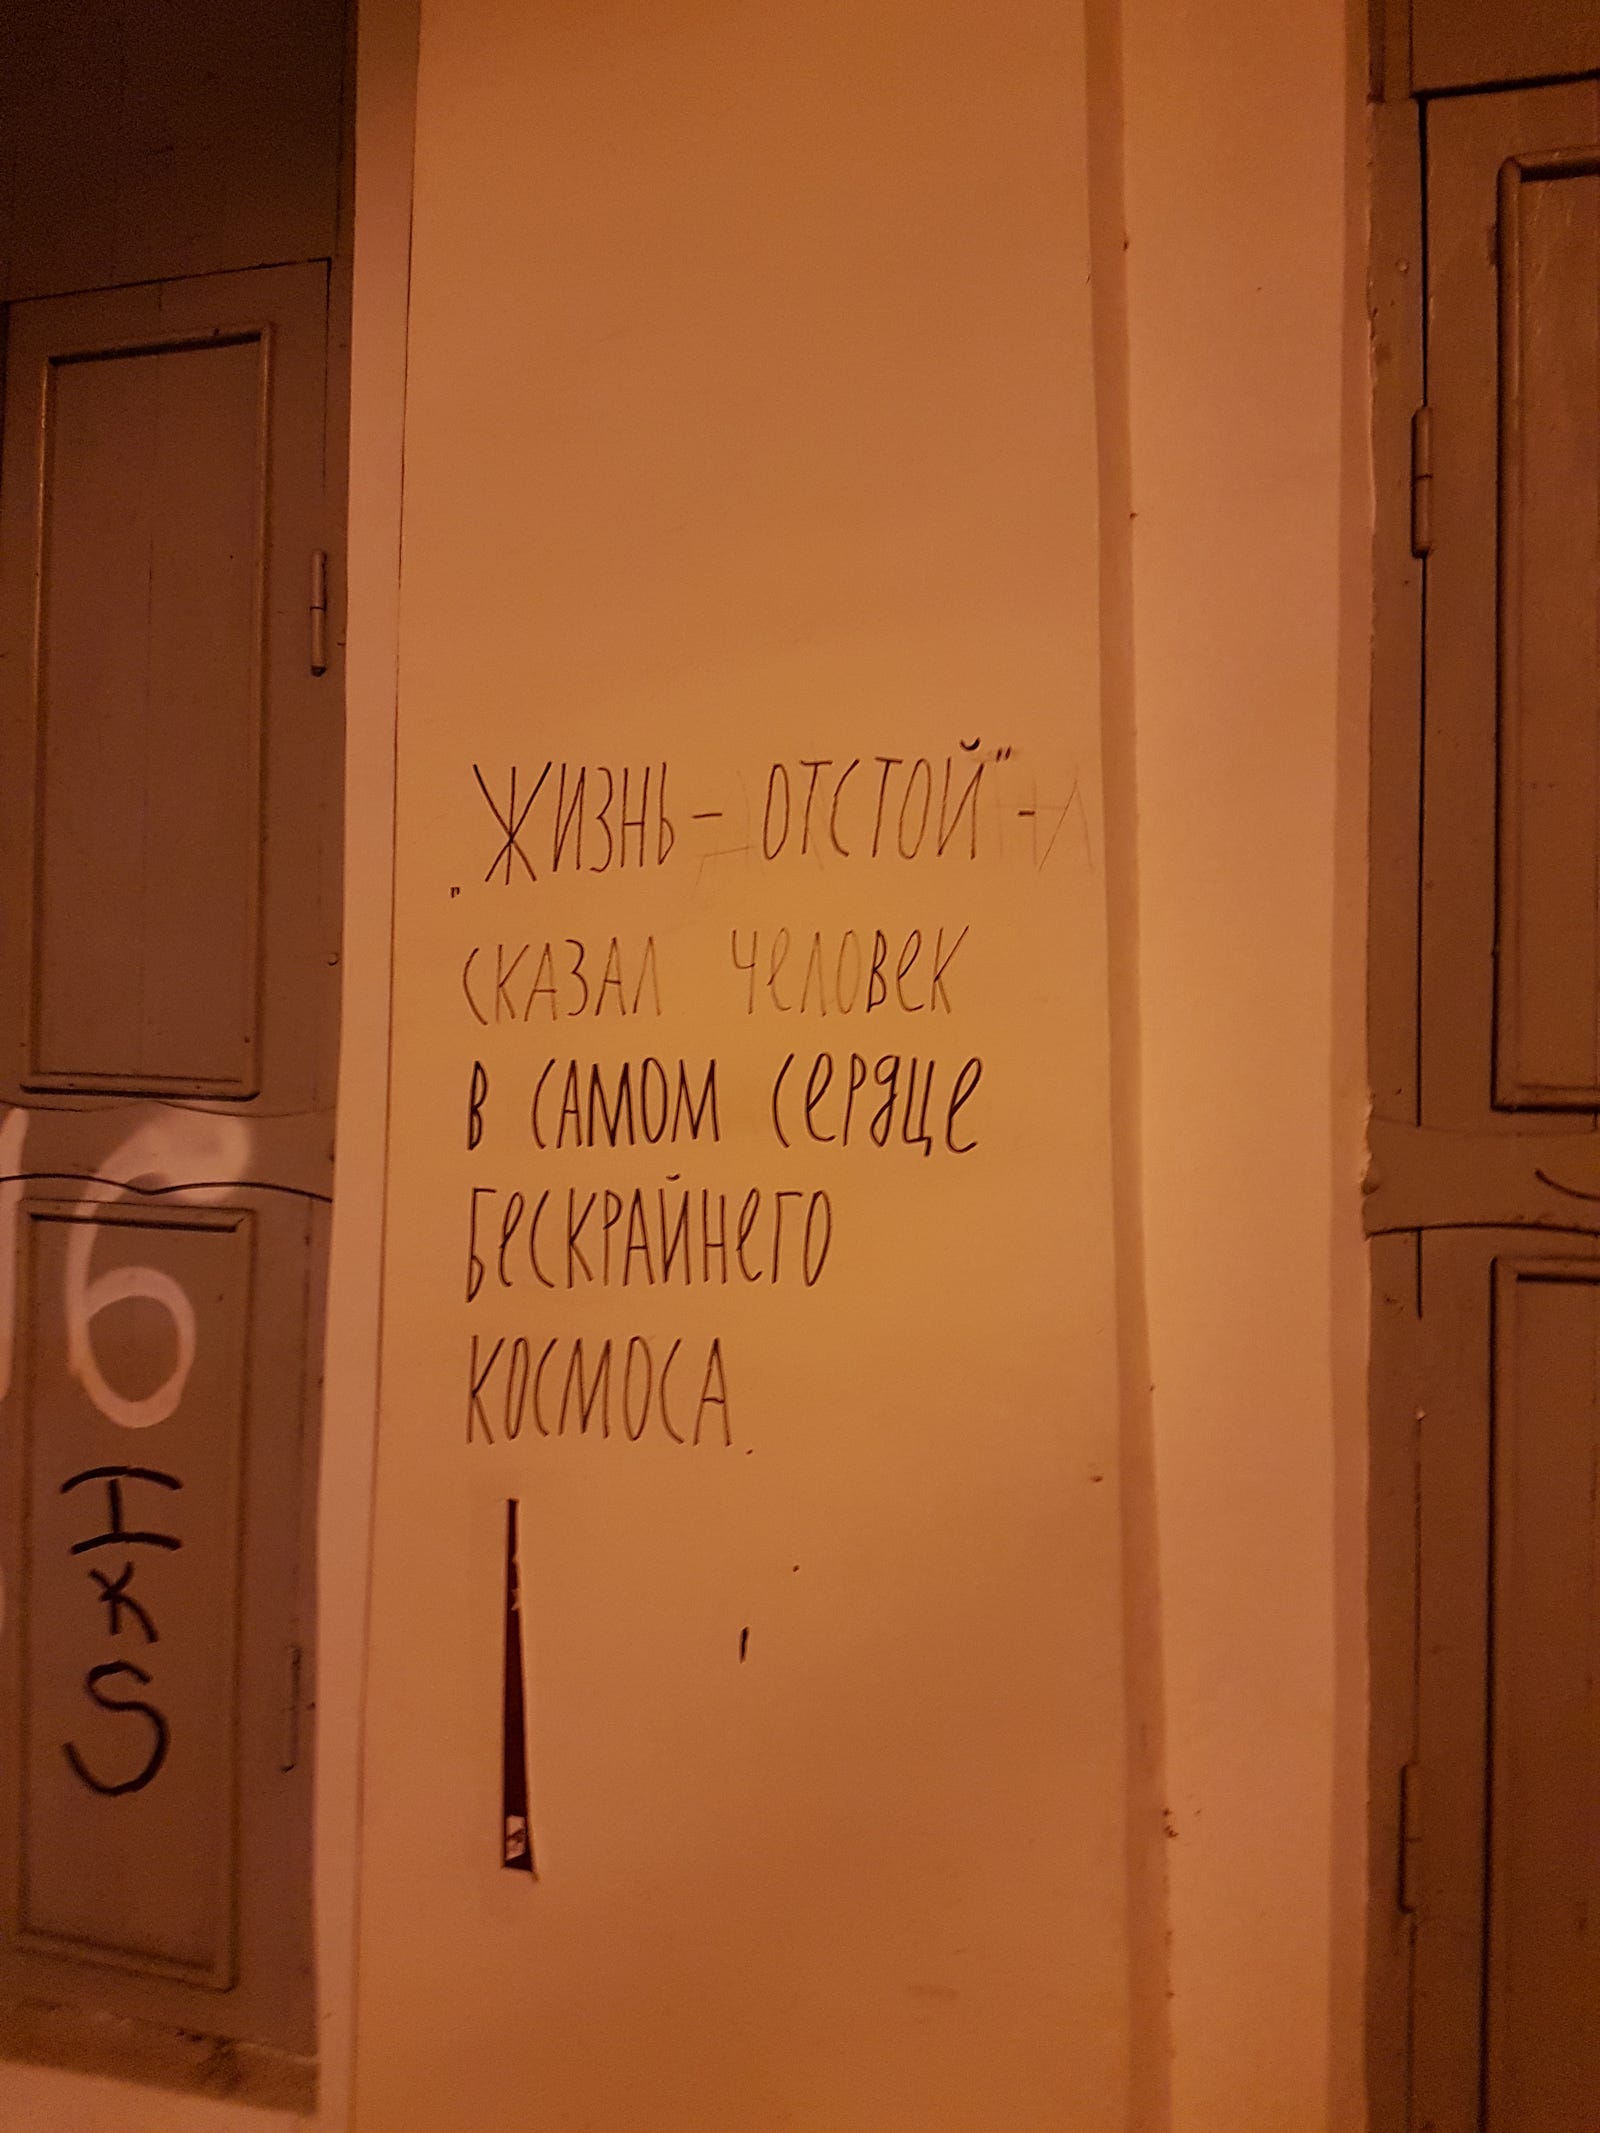 „ЖИЗНЬ – ОТСТОЙ" -
СКАЗАЛ ЧЕЛОВЕК
В САМОМ СЕРДЦЕ
БЕСКРАЙНЕГО
КОСМОСА.